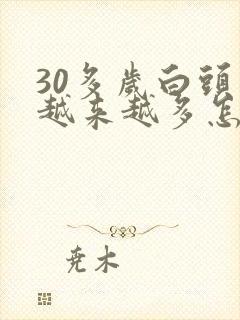 30多歲白頭
越来越多怎
尭木